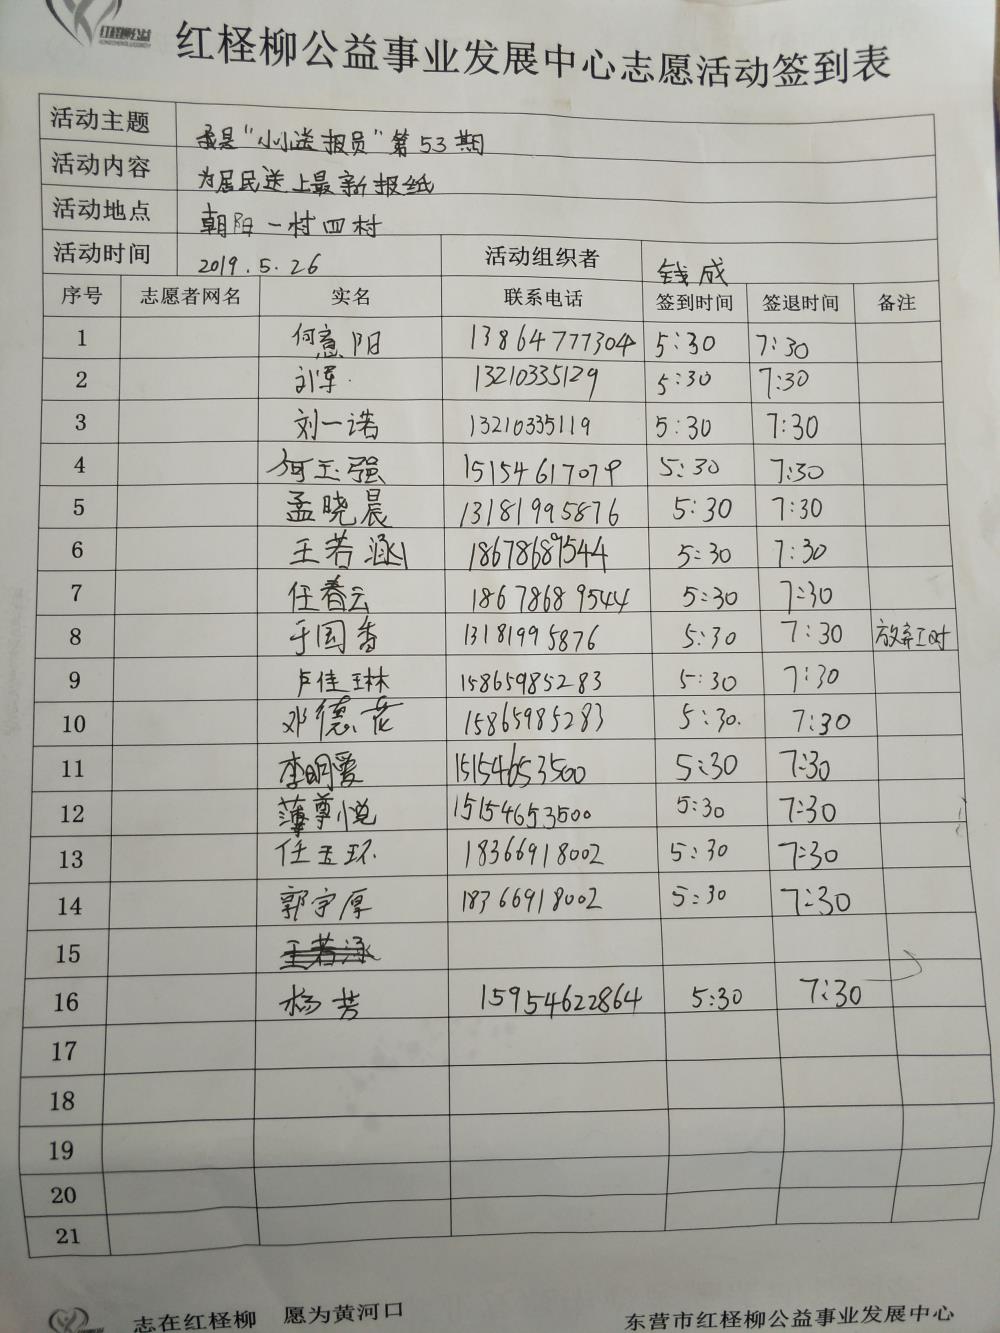 红柽柳公益
红柽柳公益事业发展中心志愿活动签到表
活动主题 我是“小小送报员”第53期
活动内容 为居民送上最新报纸
活动地点 朝阳一村四村
活动时间 2019.5.26 活动组织者 钱成
序号 志愿者网名 实名 联系电话 签到时间 签退时间 备注
1 何意阳 13864777304 5:30 7:30
2 刘军 13210335129 5:30 7:30
3 刘一诺 13210335119 5:30 7:30
4 何玉强 15154617079 5:30 7:30
5 孟晓晨 13181995876 5:30 7:30
6 王若涵 18678689544 5:30 7:30
7 任春云 18678689544 5:30 7:30
8 于国香 13181995876 5:30 7:30 放弃工时
9 卢佳琳 15865985283 5:30 7:30
10 邓德花 15865985283 5:30 7:30
11 李明爱 15154653500 5:30 7:30
12 薄尊悦 15154653500 5:30 7:30
13 任玉环 18366918002 5:30 7:30
14 郭宇厚 18366918002 5:30 7:30
15 王若涵
16 杨芳 15954622864 5:30 7:30
17
18
19
20
21
志在红柽柳 愿为黄河口 东营市红柽柳公益事业发展中心